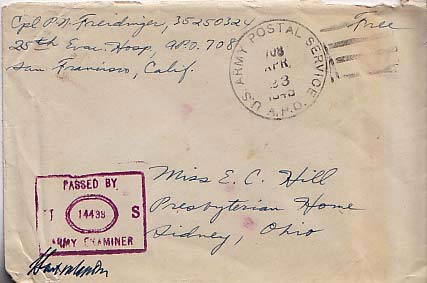 Cpl P. N. Freidinger, 35250324
25th Evac. Hosp, A.P.O. 708
San Francisco, Calif.
Free
U.S. ARMY POSTAL SERVICE
708
APR
23
A.P.O.
Miss E. C. Hill
Presbyterian Home
Sidney, Ohio
PASSED BY
14498
S
ARMY EXAMINER